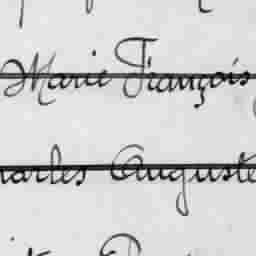 Marie François
harles Auguste